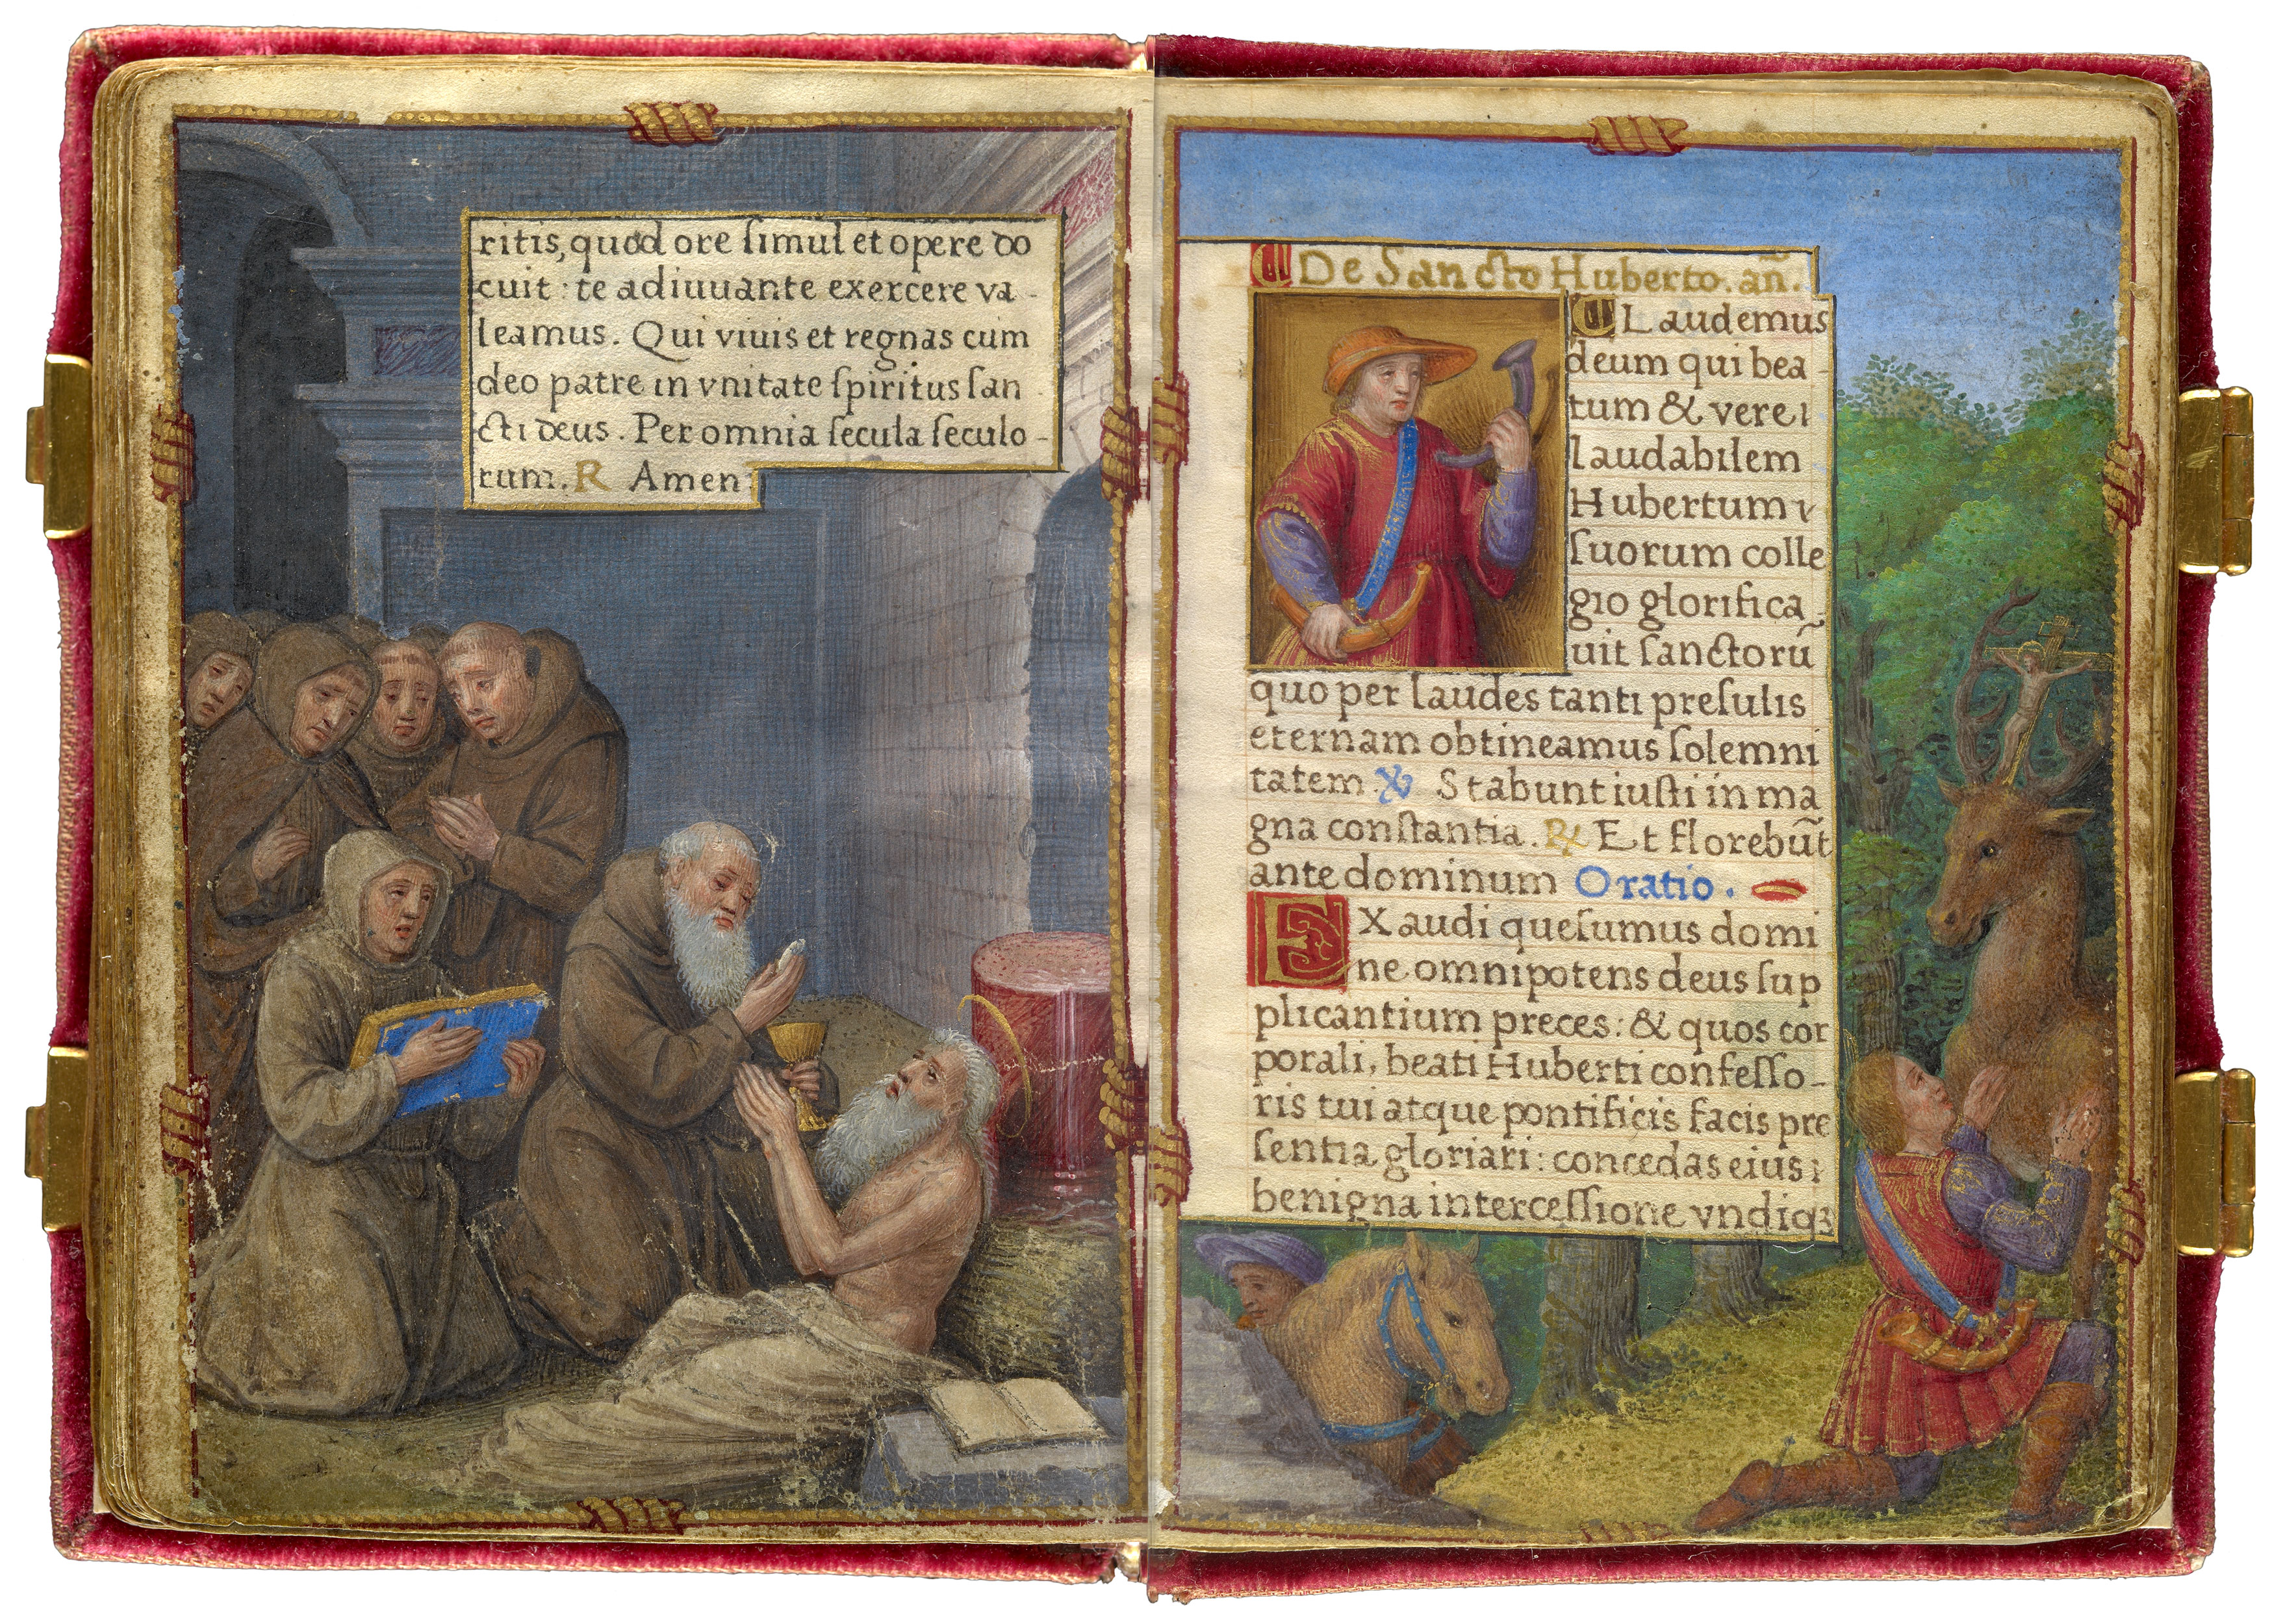 ritis, quod ore ſimul et opere do
cuit : te adiuuante exercere va-
leamus. Qui viuis et regnas cum
deo patre in vnitate ſpiritus ſan
cti deus. Per omnia ſecula ſeculo-
rum. R Amen.
De Sancto Huberto. añ.
Laudemus
deum qui bea-
tum & vere
laudabilem
Hubertum
ſuorum colle
gio glorifica-
uit ſanctorū
quo per laudes tanti preſulis
eternam obtineamus ſolemni
tatem. ℣ Stabunt iuſti in ma
gna conſtantia. ℟ Et florebūt
ante dominum Oratio.
Exaudi queſumus domi
ne omnipotens deus ſup
plicantium preces: & quos cor
porali, beati Huberti confeſſo-
ris tui atque pontificis facis pre
ſentia gloriari: concedas eius
benigna interceſſione vndiqꝫ